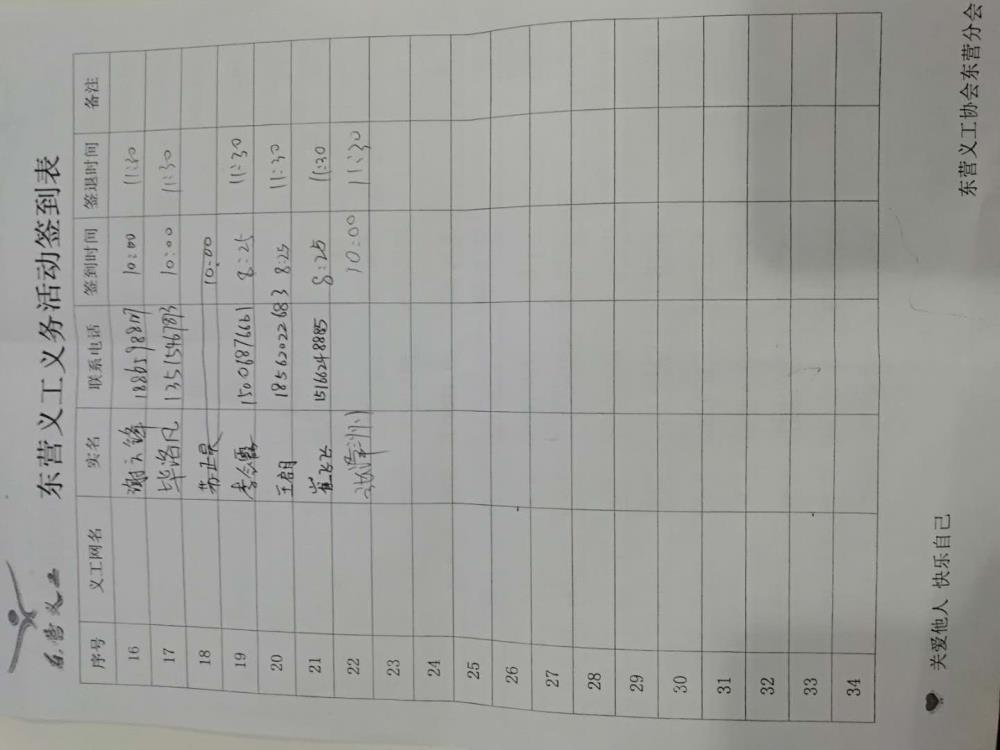 东营义工
东营义工义务活动签到表
序号 义工网名 实名 联系电话 签到时间 签退时间 备注
16 谢文锋 10:00 11:30
17 毕洛凡 10:00 11:30
18 苏正昊 10:00
19 李念露 15006876661 8:25 11:30
20 王启月 18562022683 8:25 11:30
21 崔飞飞 15166248885 8:25 11:30
22 10:00 11:30
23
24
25
26
27
28
29
30
31
32
33
34
关爱他人 快乐自己
东营义工协会东营分会